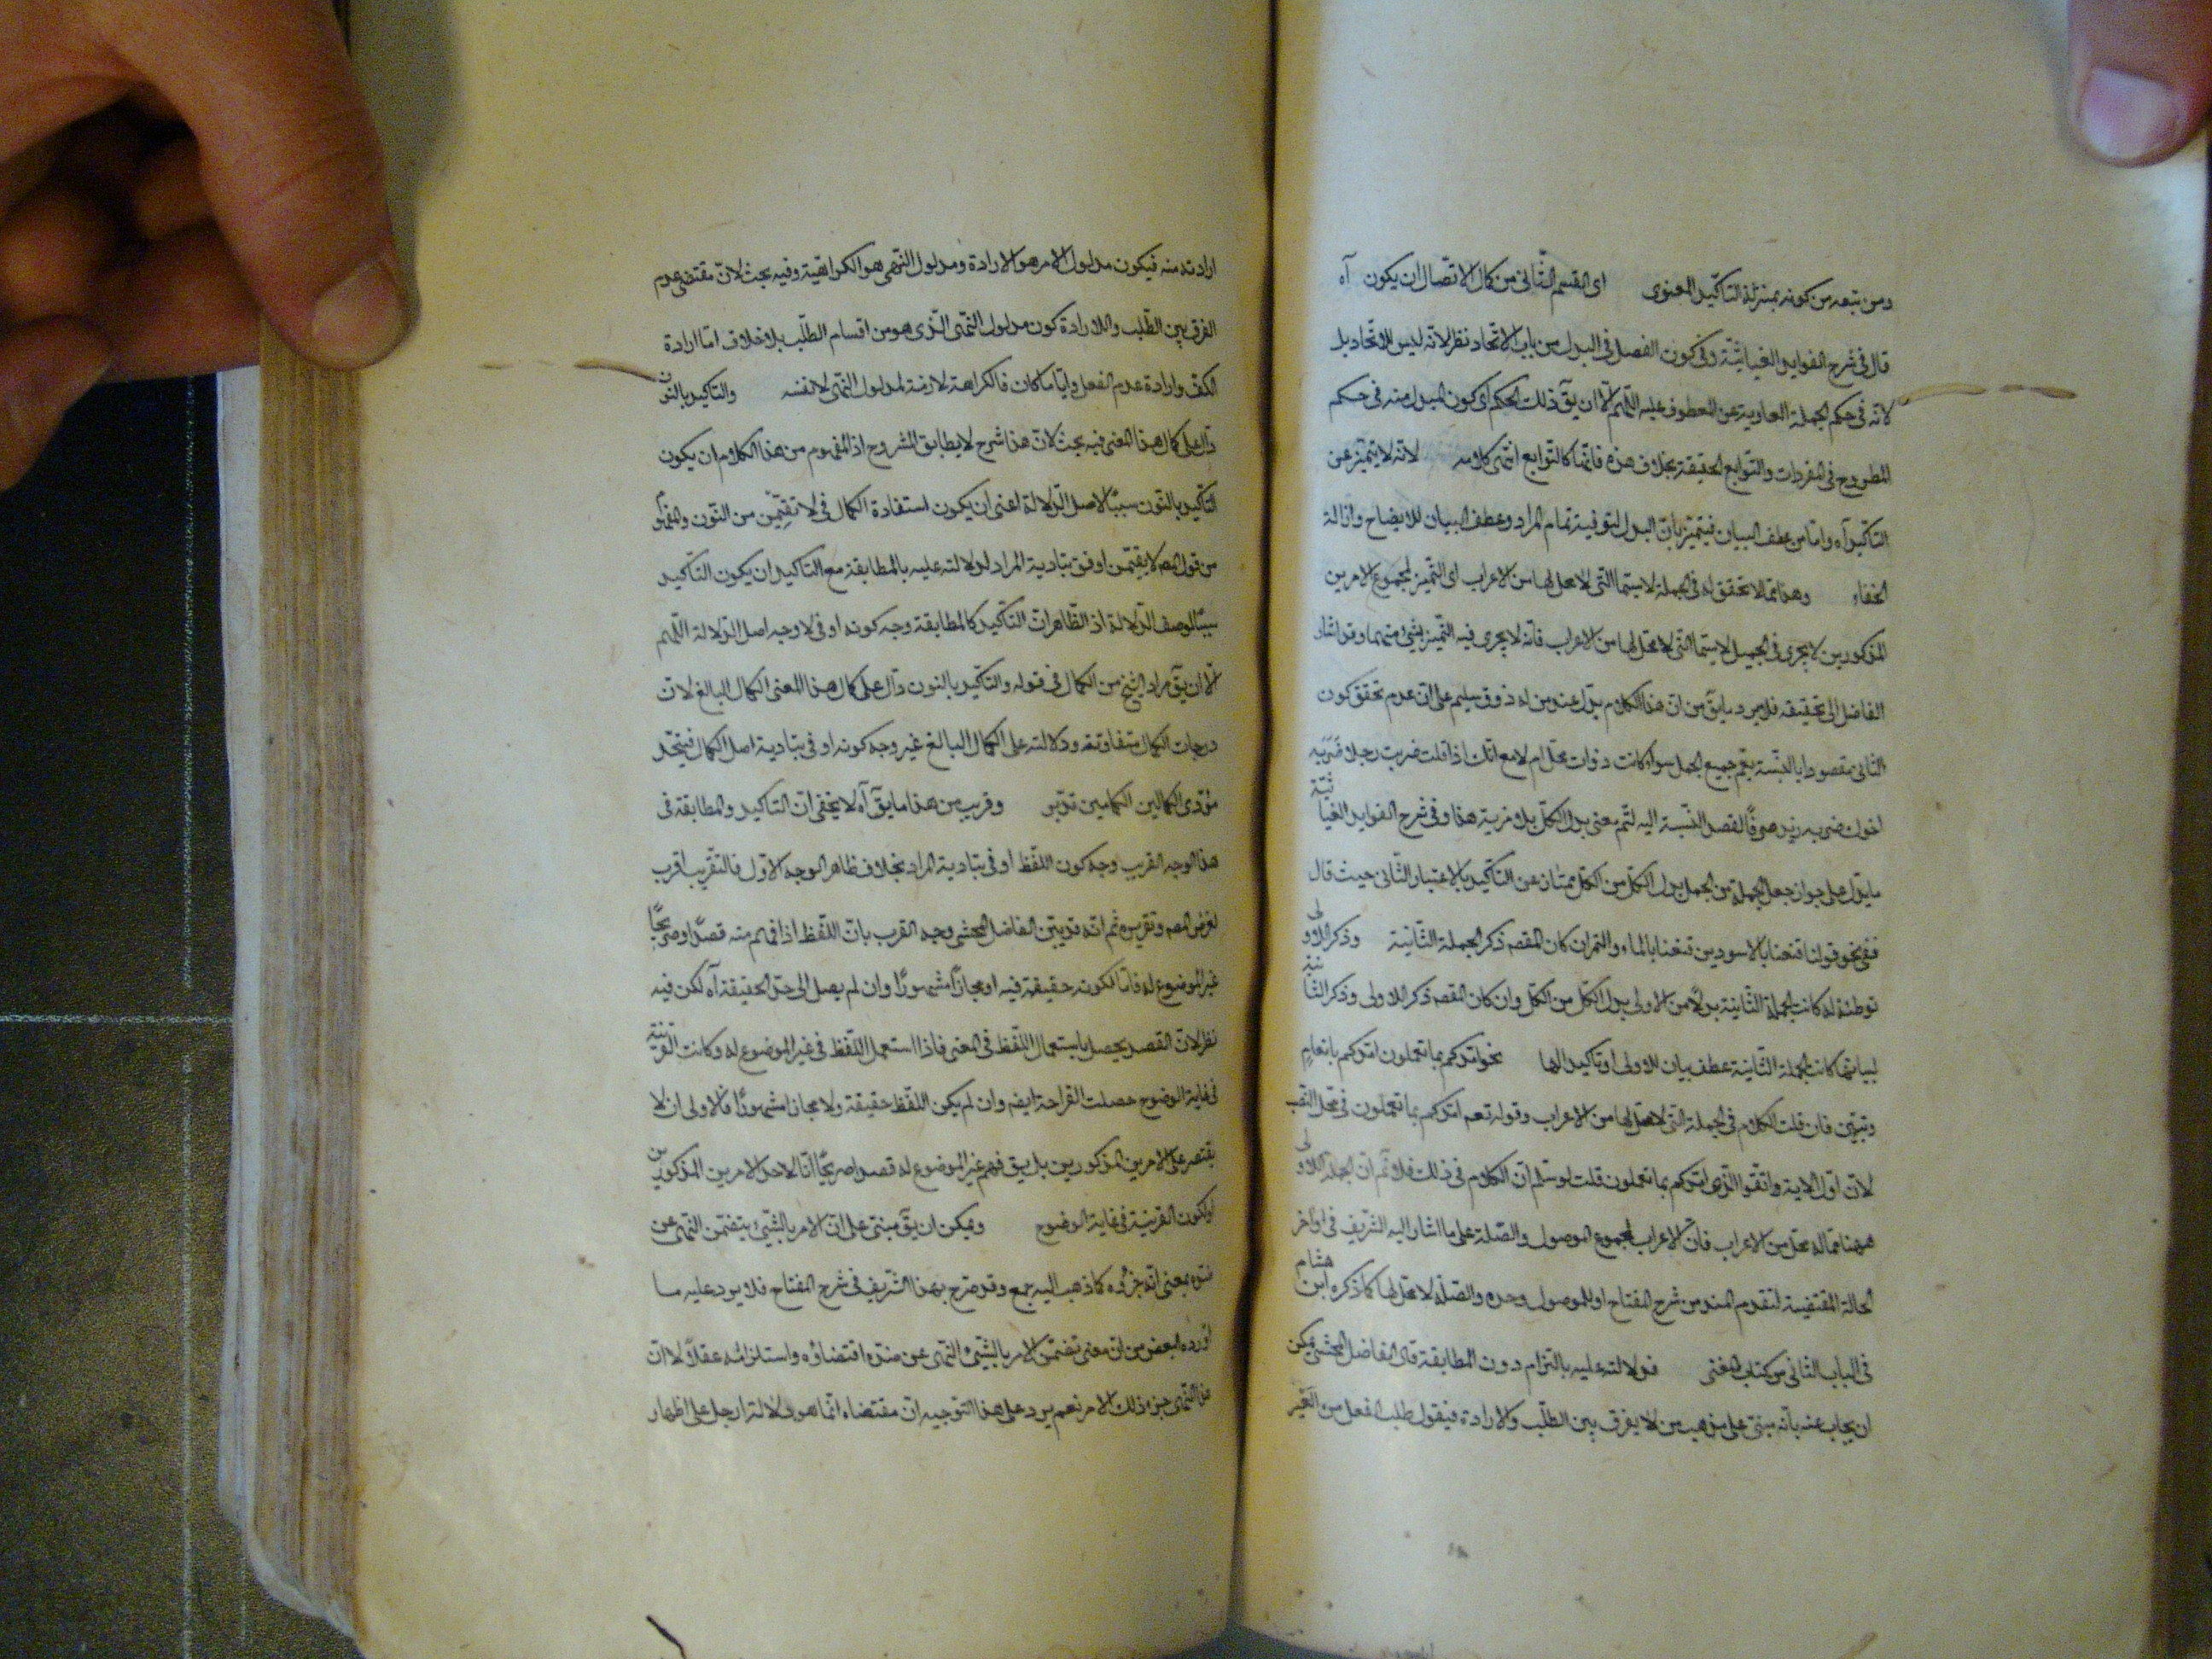 ومن تبعه من كونه بمنزلة التاكيد المعنوى اى القسم الثانى من كمال الاتصال ان يكون آه
قال فى شرح الفوايد الغياثية وفى كون الفصل فى البدل من باب الاتحاد نظر لانه ليس للاتحاد بل
لانه فى حكم الجملة العارية عن المعطوف عليه اللهم الا ان يق ذلك الحكم اى كون المبدل منه فى حكم
المطروح فى المفردات والتوابع الحقيقة بخلاف هذه فانها كالتوابع انتهى كلامه لانه لا يتميز عن
التاكيد آه واما من عطف البيان فيتميز بان البدل لتوفية تمام المراد وعطف البيان للايضاح وازالة
الخفاء وهذا مما لا تحقق له فى الجملة لاسيما التى لا محل لها من الاعراب اى التميز لمجموع الامرين
المذكورين لا يجرى فى الجمل لاسيما التى لا محل لها من الاعراب فانه لا يجرى فيه التميز بشئ منهما وقد اشار
الفاضل الى تحقيقه فلا يرد ما يق من ان هذا الكلام يدل عند من له ذوق سليم على ان عدم تحقق كون
الثانى مقصودا بالنسبة يعم جميع الجمل سواء كانت ذوات محل ام لا مع انك اذا قلت ضربت رجلا ضربه
اخوك ضربه زيد صرفا لقصد النسبة اليه لتم معنى بدل الكل بلا مزية هذا وفى شرح الفوايد الغياثية
ما يدل على جواز جعل الجملة من الجمل بدل الكل من الكل ممتاز عن التاكيد بالاعتبار الثانى حيث قال
ففى نحو قولنا قنعنا بالاسودين قنعنا بالماء والتمر ان كان المقصد ذكر الجملة الثانية وذكر الاولى
توطئة له كانت الجملة الثانية بدلا من الاولى بدل الكل من الكل وان كان المقصد ذكر الاولى وذكر الثانية
لبيانها كانت الجملة الثانية عطف بيان للاولى او تاكيدا لها نحو امدكم بما تعملون امدكم بانعام
وبنين فان قلت الكلام فى الجملة التى لا محل لها من الاعراب وقوله تعم امدكم بما تعملون فى محل النصب
لان اول الاية واتقوا الذى امدكم بما تعملون قلت لو سلم ان الكلام فى ذلك فلا ثم ان الجملة الاولى
ههنا مما له محل من الاعراب فان الاعراب لمجموع الموصول والصلة على ما اشار اليه الشريف فى اواخر
الحالة المقتضية لتقدم المسند من شرح المفتاح او للموصول وحده والصلة لا محل لها كما ذكره ابن هشام
فى الباب الثانى من كتاب المغنى فدلالته عليه بالتزام دون المطابقة قال الفاضل المحشى يمكن
ان يجاب عنه بانه مبنى على مذهب من لا يفرق بين الطلب والارادة فيقول طلب الفعل من الغير
ارادته منه فيكون مدلول الامر هو الارادة ومدلول النهى هو الكراهية وفيه بحث لان مقتضى عدم
الفرق بين الطلب والارادة كون مدلول النهى الذى هو من اقسام الطلب بلا خلاف اما ارادة
الكف وارادة عدم الفعل وايا ما كان فالكراهة لازمة لمدلول النهى لا نفسه والتاكيد بالنون
دال على كمال هذا المعنى فيه بحث لان هذا شرح لا يطابق المشروح اذ المفهوم من هذا الكلام ان يكون
التاكيد بالنون سببا لاصل الدلالة اعنى ان يكون استفادة الكمال فى لا تقيمن من النون والمفهوم
من قول المصم لا يقيمن اوفى بتادية المراد لدلالته عليه بالمطابقة مع التاكيد ان يكون التاكيد
سببا لوصف الدلالة اذ الظاهر ان التاكيد كالمطابقة وجه كونه اوفى لا وجه اصل الدلالة اللهم
الا ان يق مراد الشيخ من الكمال فى قوله والتاكيد بالنون دال على كمال هذا المعنى الكمال البالغ لان
درجات الكمال متفاوتة ودلالته على الكمال البالغ غير وجه كونه اوفى بتادية اصل الكمال فيتحد
مؤدى الكمالين الكمالين تدبر وقريب من هذا ما يق آه لا يخفى ان التاكيد والمطابقة فى
هذا الوجه القريب وجه كون اللفظ اوفى بتادية المراد بخلاف ظاهر الوجه الاول فالتقريب اقرب
لغرض المصم وتقريره ثم انه قد بين الفاضل المحشى وجه القرب بان اللفظ اذا فهم منه قصدا وصريحا
غير الموضوع له فاما لكونه حقيقة فيه او مجازا مشهورا وان لم يصل الى حد الحقيقة آه لكن فيه
نظر لان القصد يحصل باستعمال اللفظ فى المعنى فاذا استعمل اللفظ فى غير الموضوع له وكانت القرينة
فى غاية الوضوح حصلت القراحة ايضم وان لم يكن اللفظ حقيقة ولا مجازا مشهورا فالاولى ان لا
يقتصر على الامرين المذكورين بل يق فهم غير الموضوع له قصدا صريحا اما لاحد الامرين المذكورين
او لكون القرينة فى غاية الوضوح ويمكن ان يق مبنى على ان الامر بالشئ يتضمن النهى عن
ضده بمعنى انه جزؤه كما ذهب اليه جمع وقد صرح بهذا الشريف فى شرح المفتاح فلا يرد عليه ما
اورده البعض من ان معنى تضمن الامر بالشئ النهى عن ضده اقتضاؤه واستلزامه عقلا لا ان
هذا النهى جزء ذلك الامر نعم يرد على هذا التوجيه ان مقتضاء انما هو دلالة ارحل على اظهار